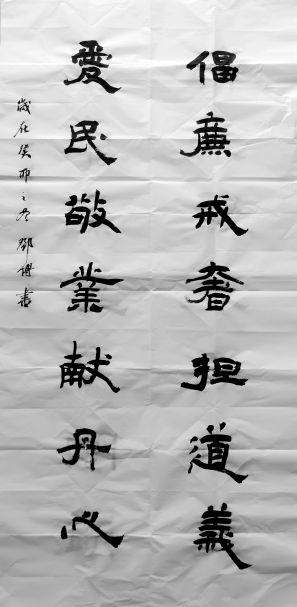 倡廉戒奢担道義
愛民敬業献丹心
歲在癸卯之冬 鄧博書